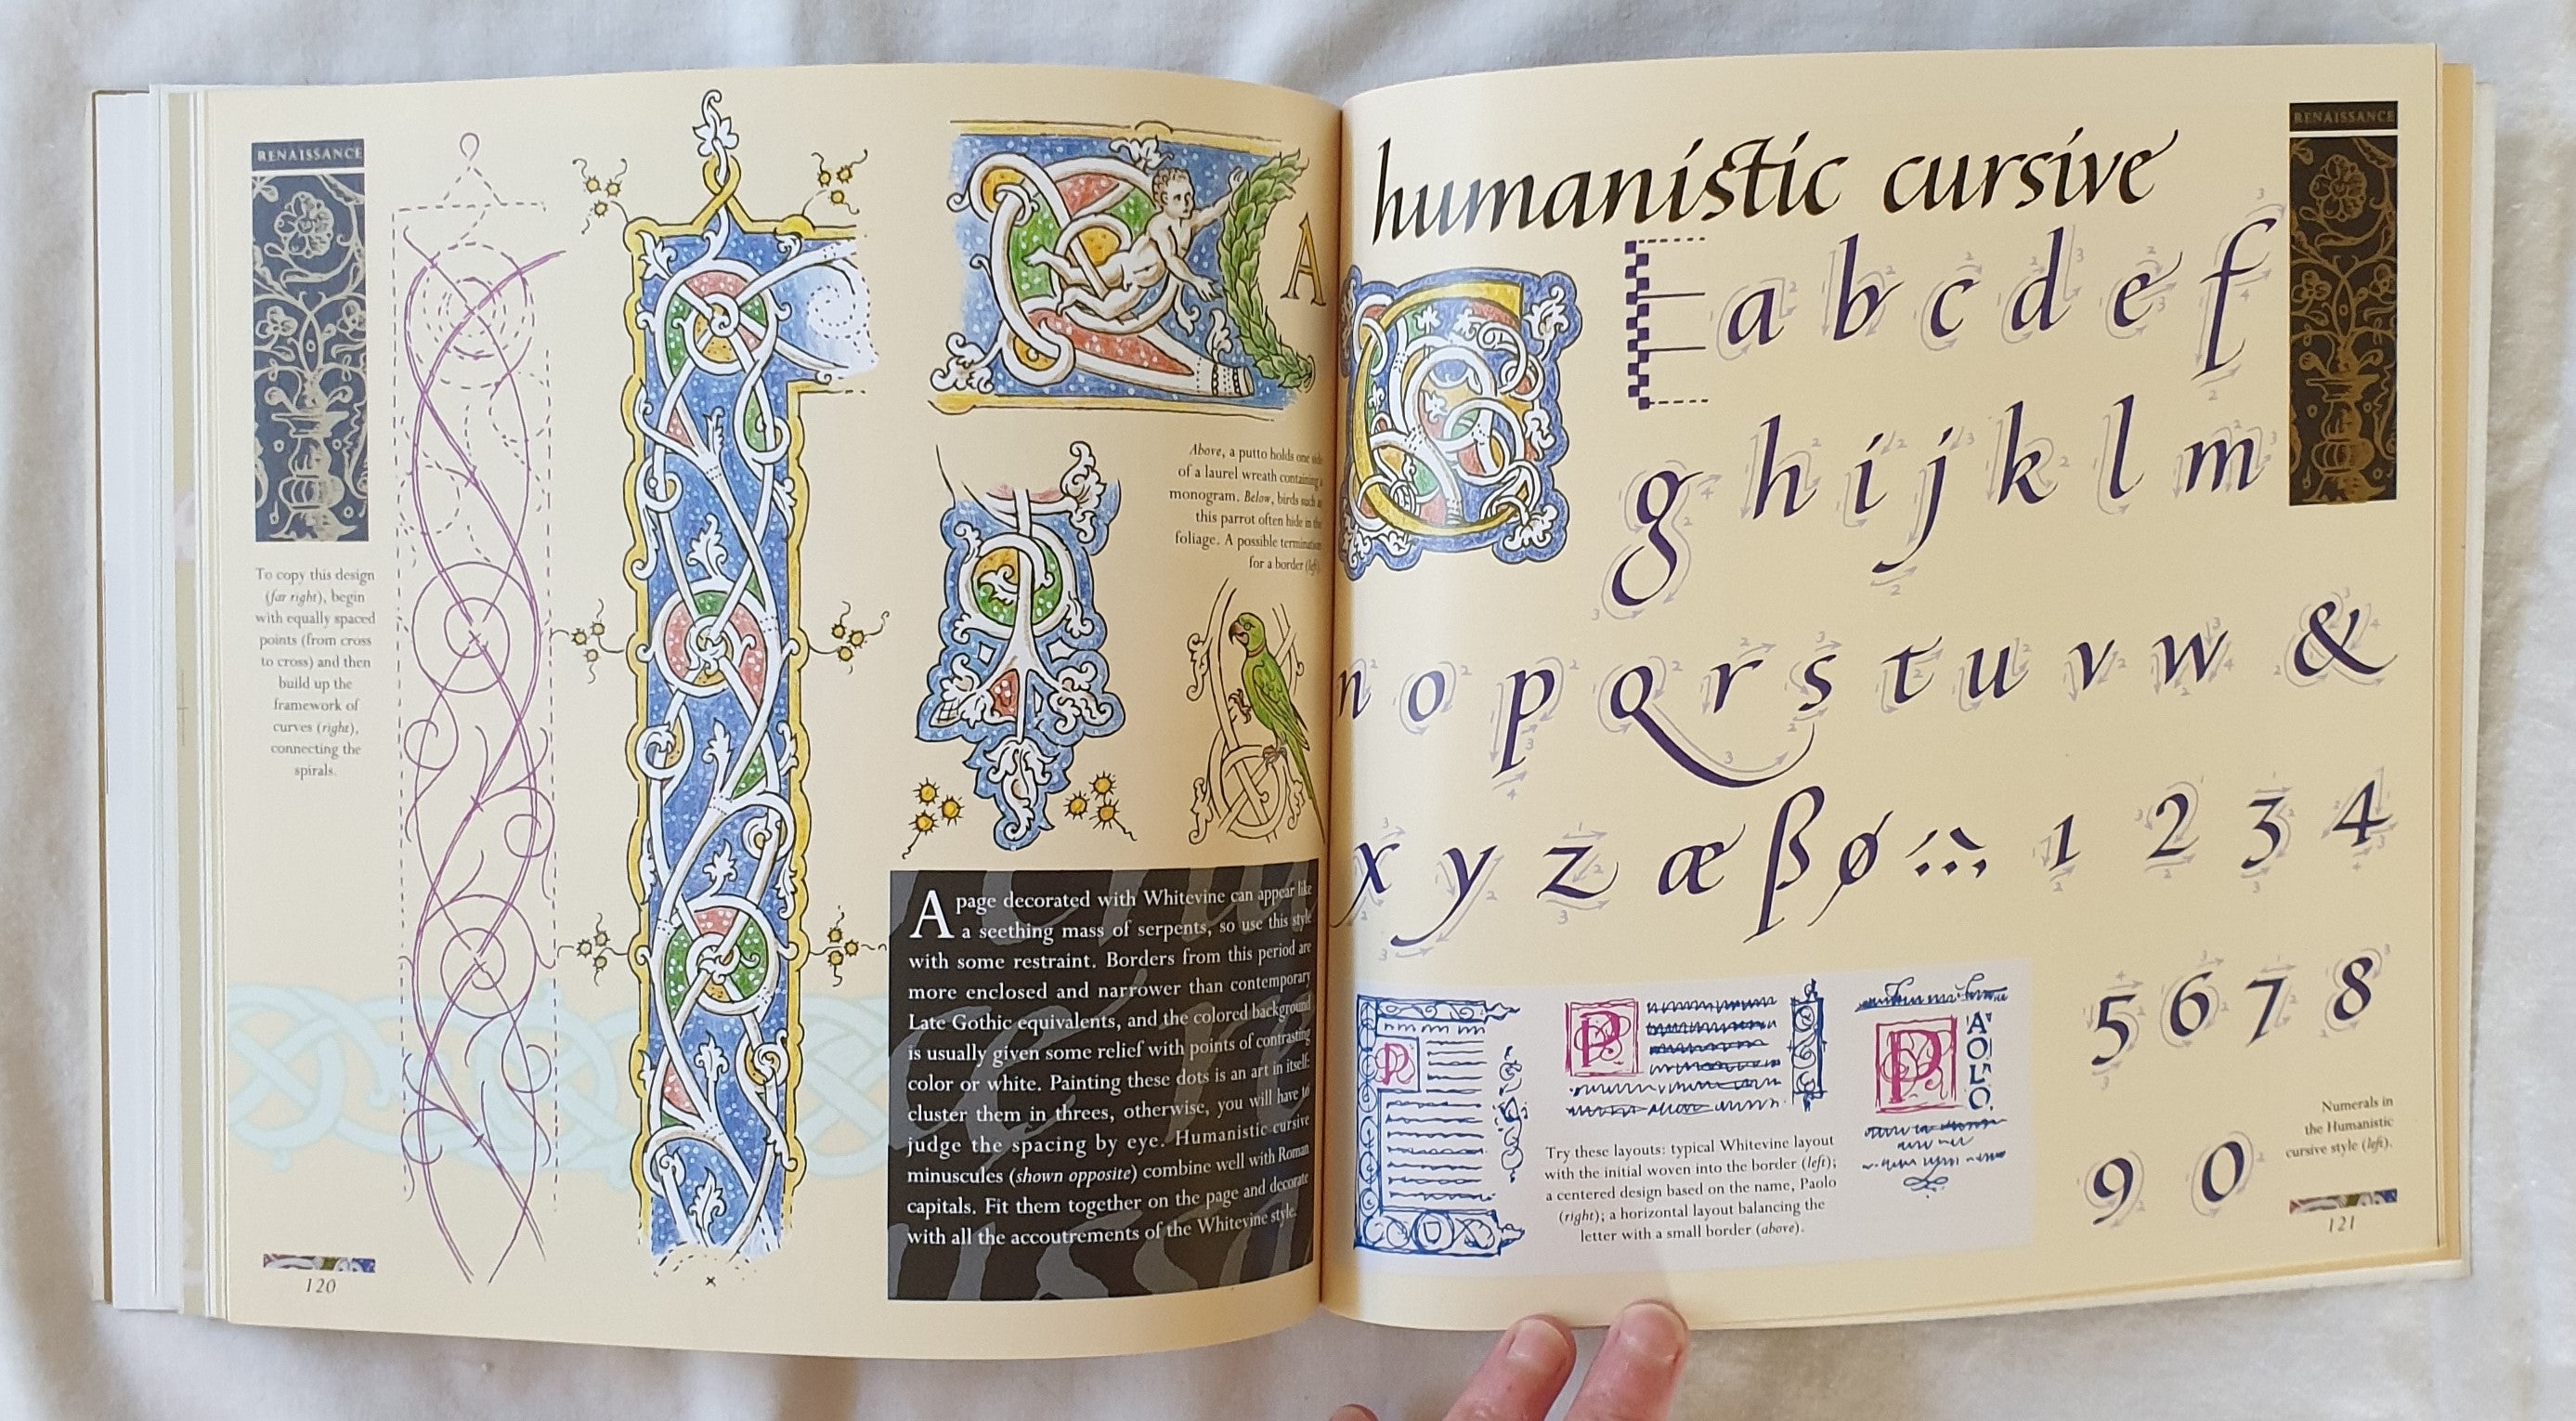 RENAISSANCE
To copy this design
(far right), begin
with equally spaced
points (from cross
to cross) and then
build up the
framework of
curves (right),
connecting the
spirals.
120
A
Above, a putto holds one side
of a laurel wreath containing a
monogram. Below, birds such as
this parrot often hide in the
foliage. A possible termination
for a border (left).
A page decorated with Whitevine can appear like
a seething mass of serpents, so use this style
with some restraint. Borders from this period are
more enclosed and narrower than contemporary
Late Gothic equivalents, and the colored background
is usually given some relief with points of contrasting
color or white. Painting these dots is an art in itself:
cluster them in threes, otherwise, you will have to
judge the spacing by eye. Humanistic cursive
minuscules (shown opposite) combine well with Roman
capitals. Fit them together on the page and decorate
with all the accoutrements of the Whitevine style.
humanistic cursive
RENAISSANCE
a b c d e f
g h i j k l m
n o p q r s t u v w &
x y z æ ß ø 1 2 3 4
5 6 7 8
9 0
P
P
P
PAOLO
Try these layouts: typical Whitevine layout
with the initial woven into the border (left);
a centered design based on the name, Paolo
(right); a horizontal layout balancing the
letter with a small border (above).
Numerals in
the Humanistic
cursive style (left).
121